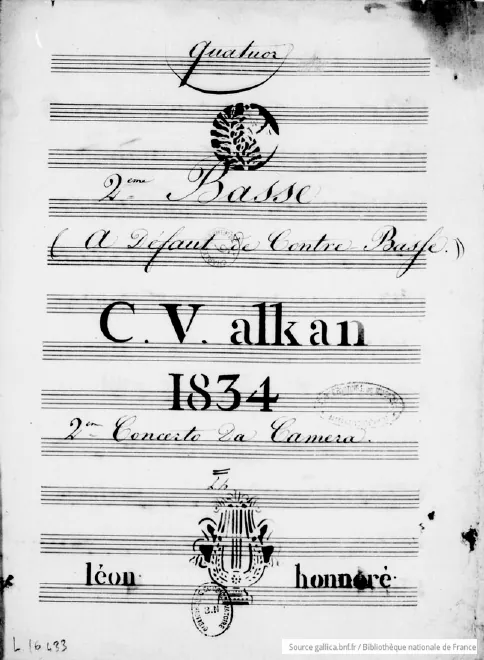 quatuor
2eme Basse
( A Défaut de Contre Basse. )
C. V. alkan
1834
2em Concerto Da Camera.
léon honnoré
L. 16 433
Source gallica.bnf.fr / Bibliothèque nationale de France